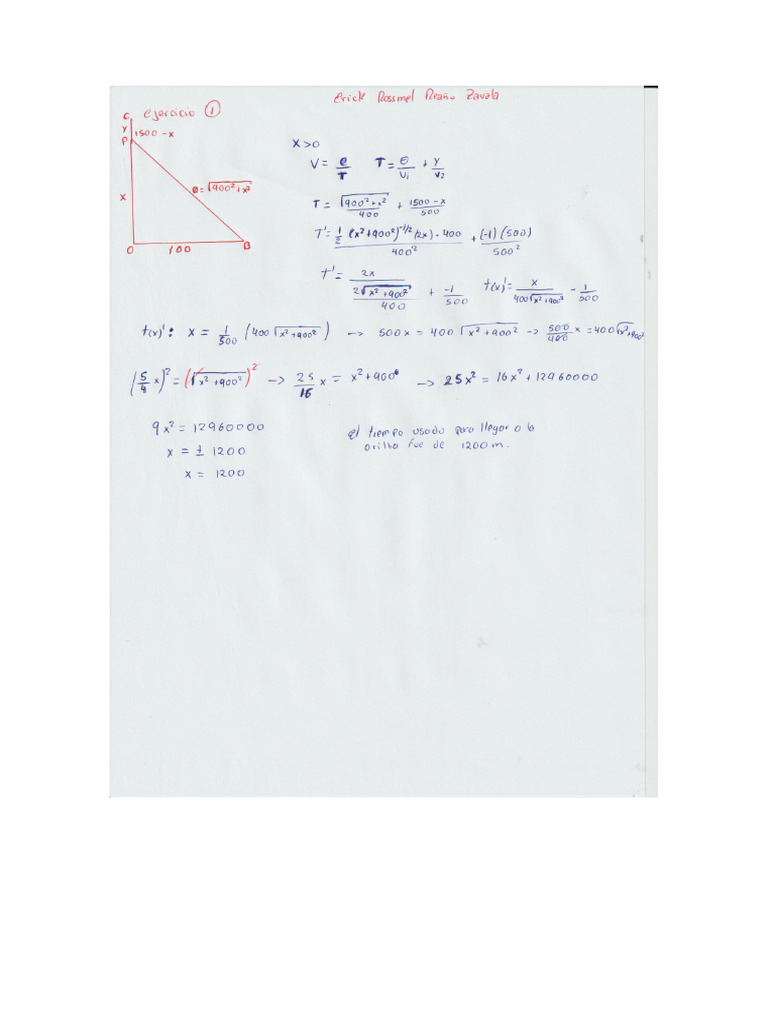 Erick Rossmel Reaño Zavala
Ejercicio 1
C
Y
P
1500 - x
x
e = √(900² + x²)
O 100 B
x > 0
V = e/T T = e/V₁ + Y/V₂
T = √(900² + x²)/400 + (1500 - x)/500
T' = (1/2 (x² + 900²)^(-1/2) (2x) · 400)/400² + (-1)(500)/500²
t' = (2x/(2√(x² + 900²)))/400 + -1/500 t(x)' = x/(400√(x² + 900²)) - 1/500
t(x)': x = 1/500 (400√(x² + 900²)) → 500x = 400√(x² + 900²) → 500/400 x = 400√(x² + 900²)
(5/4 x)² = (√(x² + 900²))² → 25/16 x = x² + 900² → 25x² = 16x² + 12960000
9x² = 12960000
x = ± 1200
x = 1200
El tiempo usado para llegar a la
orilla fue de 1200 m.